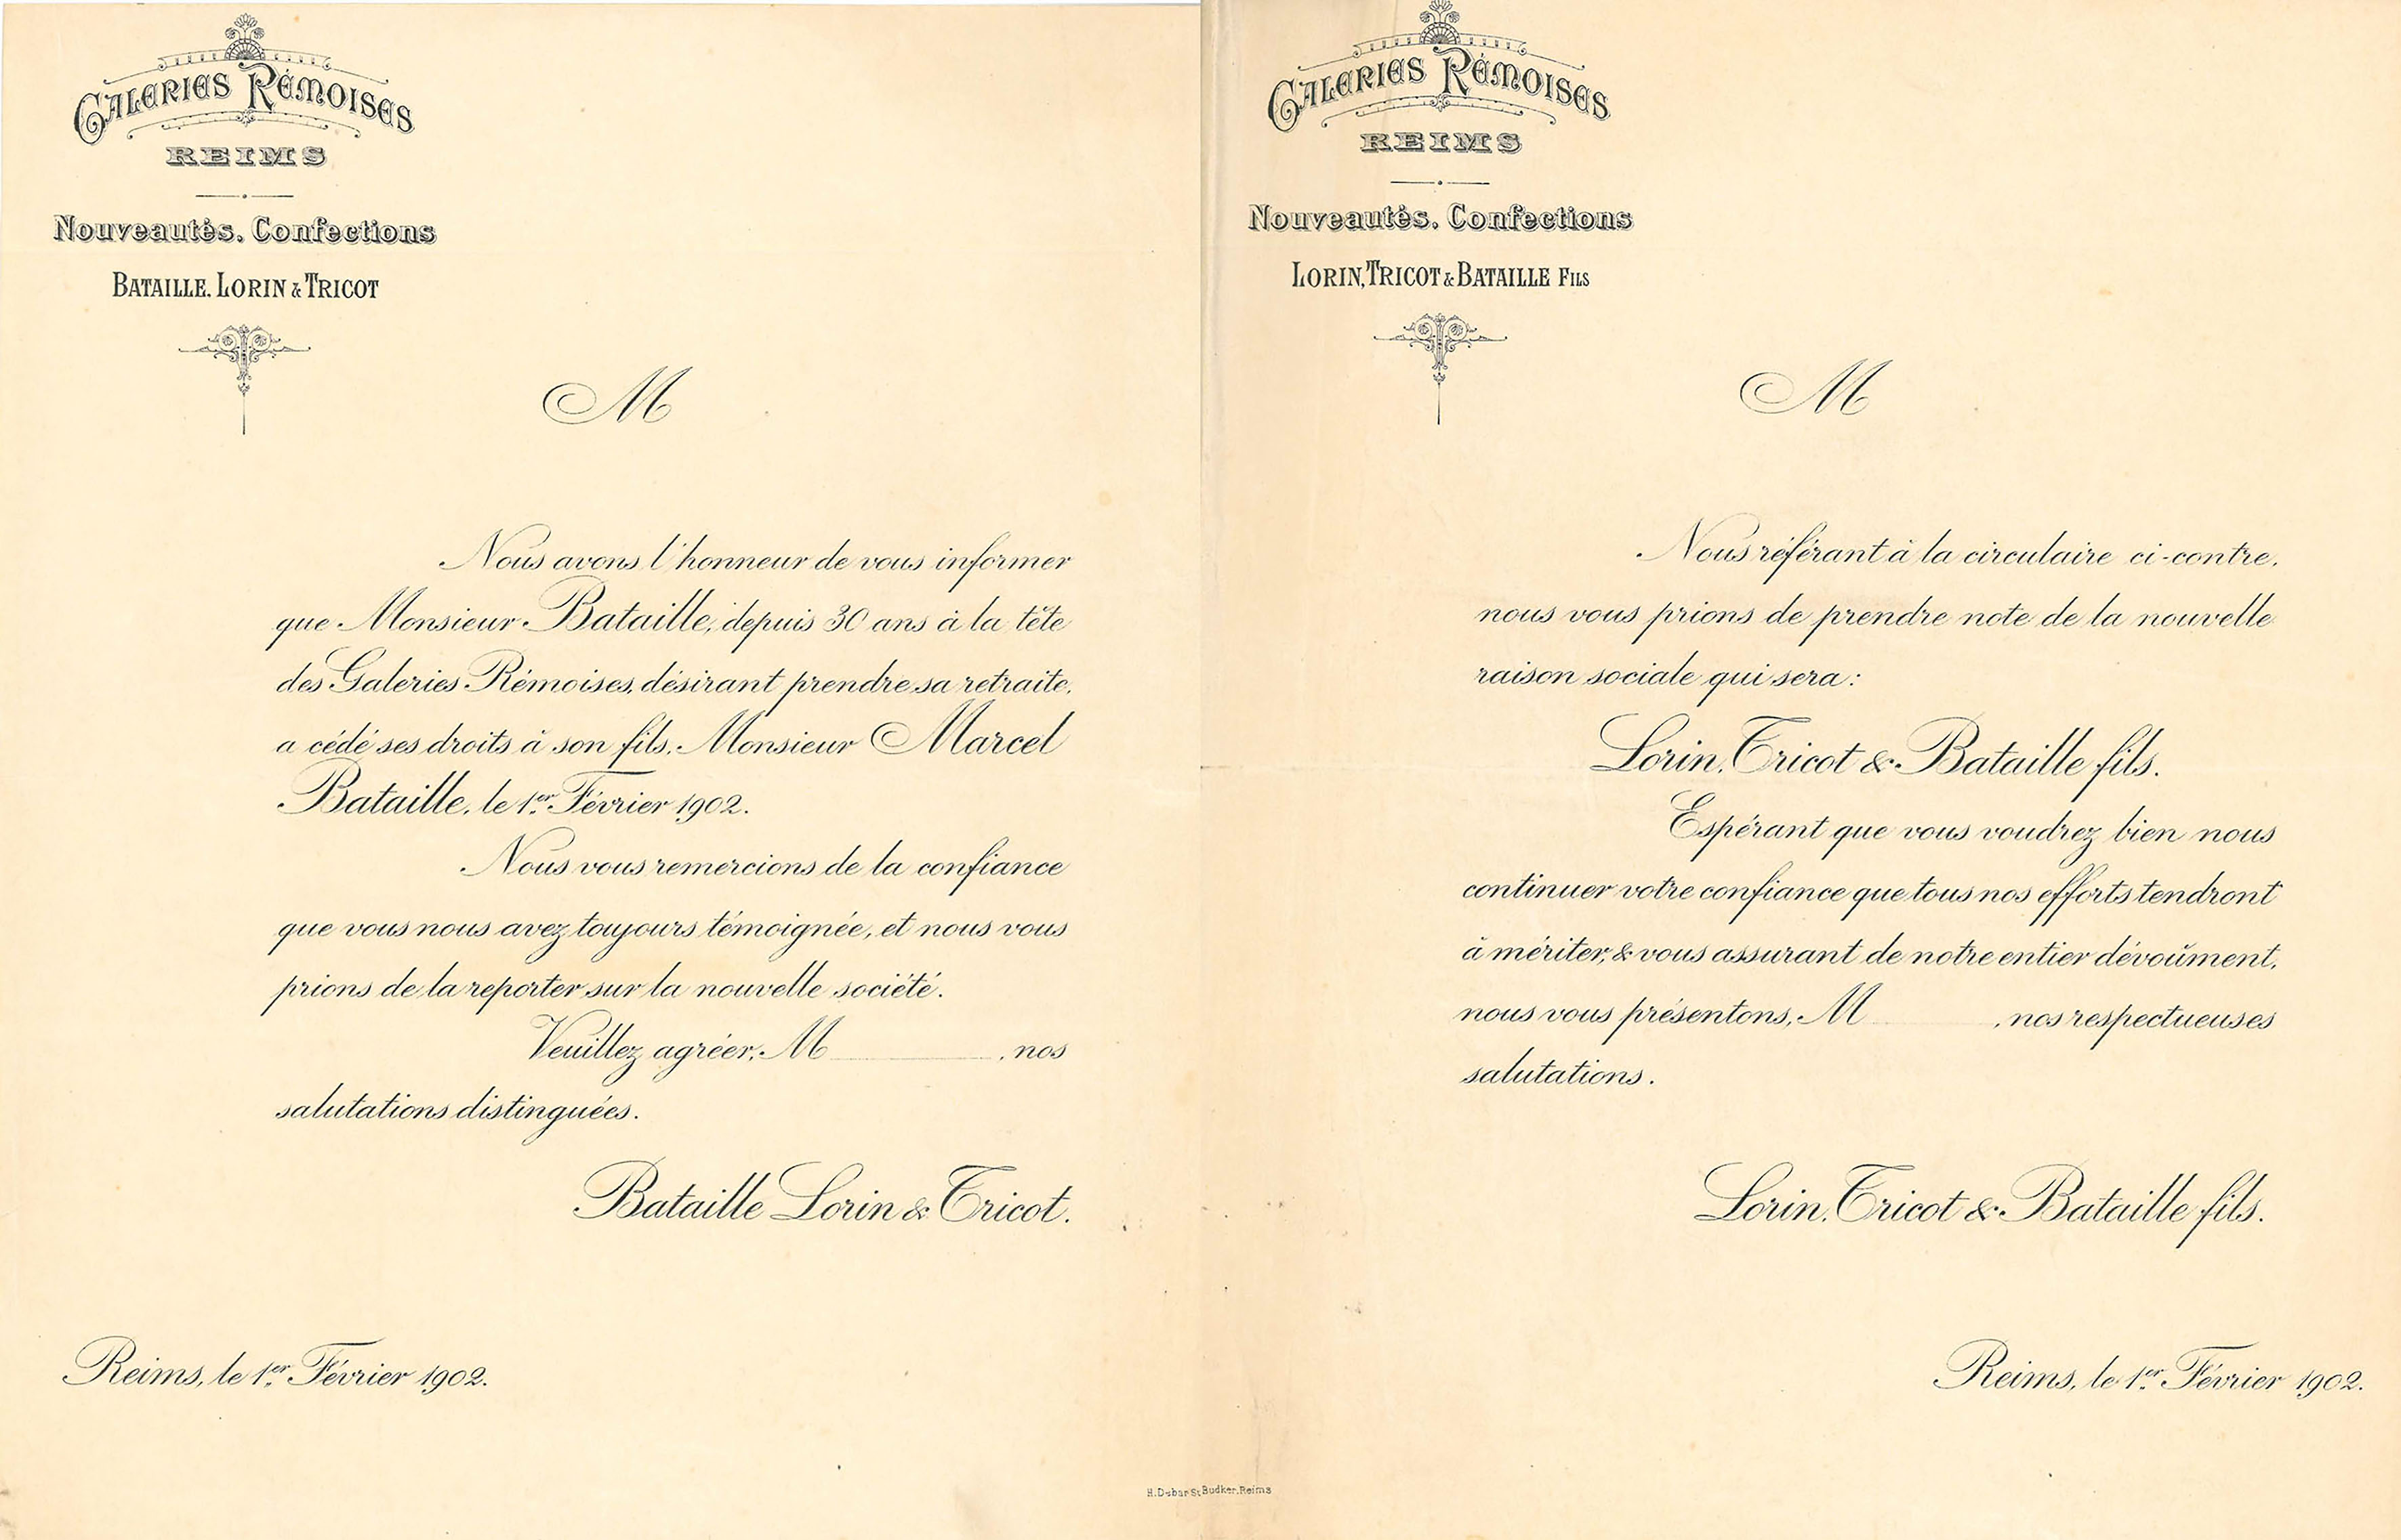 Galeries Rémoises
REIMS
Nouveautés. Confections
BATAILLE. LORIN & TRICOT
M
Nous avons l'honneur de vous informer
que Monsieur Bataille, depuis 30 ans à la tête
des Galeries Rémoises, désirant prendre sa retraite,
a cédé ses droits à son fils, Monsieur Marcel
Bataille, le 1er Février 1902.
Nous vous remercions de la confiance
que vous nous avez toujours témoignée, et nous vous
prions de la reporter sur la nouvelle société.
Veuillez agréer, M , nos
salutations distinguées.
Bataille Lorin & Tricot.
Reims, le 1er Février 1902.
Galeries Rémoises
REIMS
Nouveautés. Confections
LORIN, TRICOT & BATAILLE FILS
M
Nous référant à la circulaire ci-contre,
nous vous prions de prendre note de la nouvelle
raison sociale qui sera :
Lorin, Tricot & Bataille fils.
Espérant que vous voudrez bien nous
continuer votre confiance que tous nos efforts tendront
à mériter, & vous assurant de notre entier dévoûment,
nous vous présentons, M , nos respectueuses
salutations.
Lorin, Tricot & Bataille fils.
Reims, le 1er Février 1902.
Reims